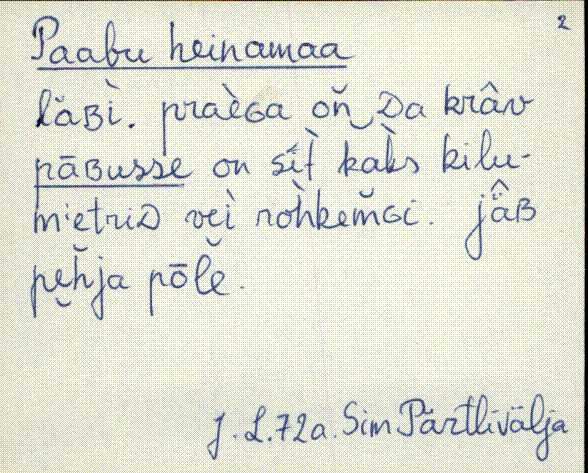 2
Paabu heinamaa
lǎʙì. praèɢa oň ᴅa krâv
pāʙusse on sìt kàks kilu-
mˈetriᴅ veì rohkem̆ɢi. jä̂ʙ
pe̮h̆ja pōlĕ.
J. L. 72a. Sim Pärtlivälja